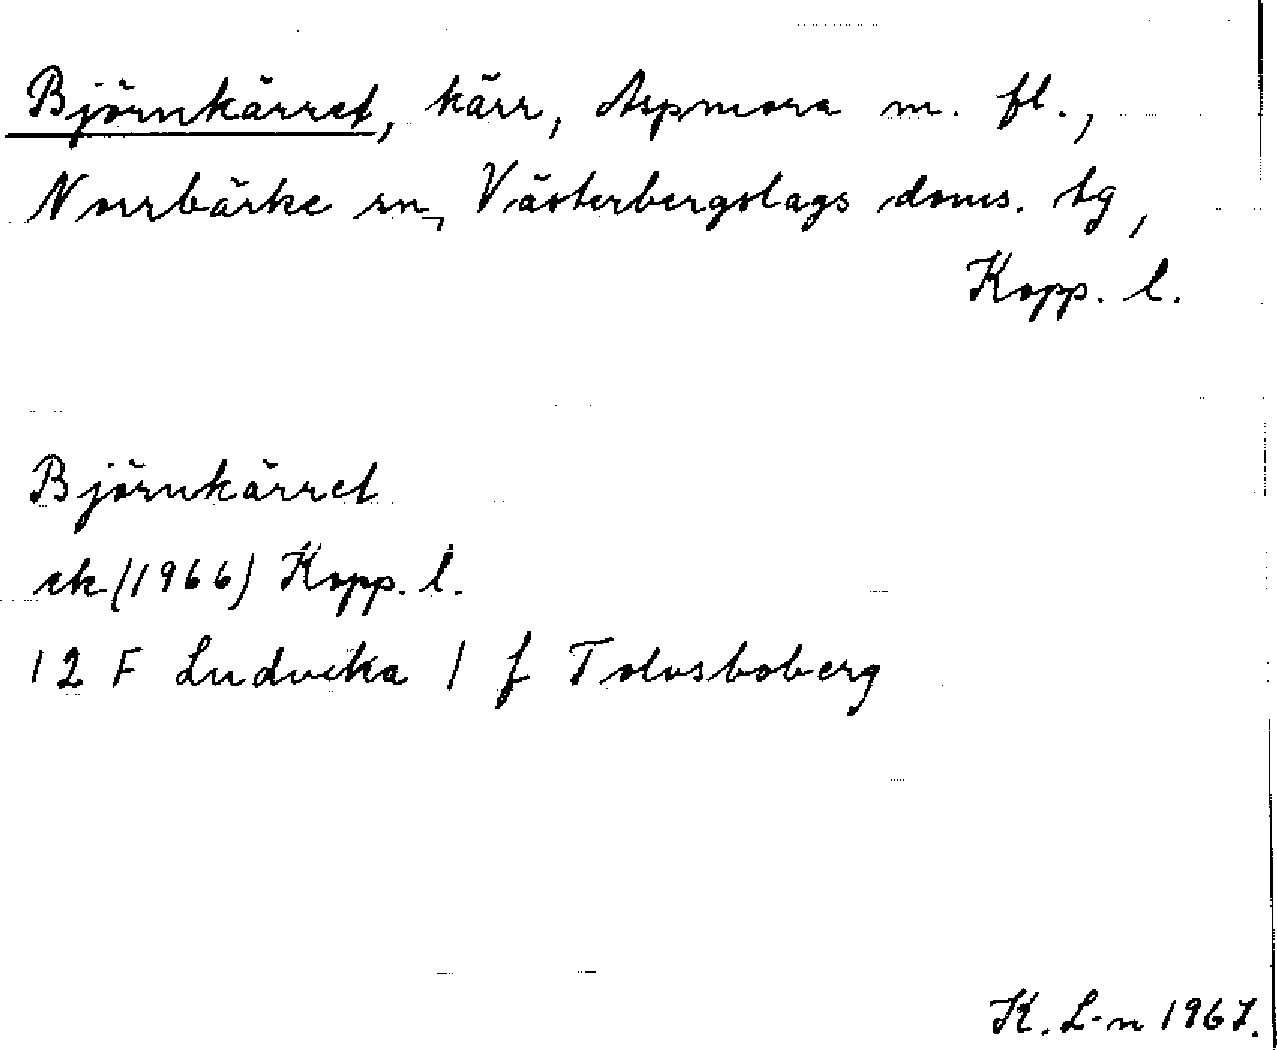 Björnkärret, kärr, Aspmora m. fl.,
Norrbärke sn, Västerbergslags doms. tg,
Kopp. l.
Björnkärret
ek (1966) Kopp. l.
12 F Ludvika 1 f Tolvsboberg
K. L-n 1967.